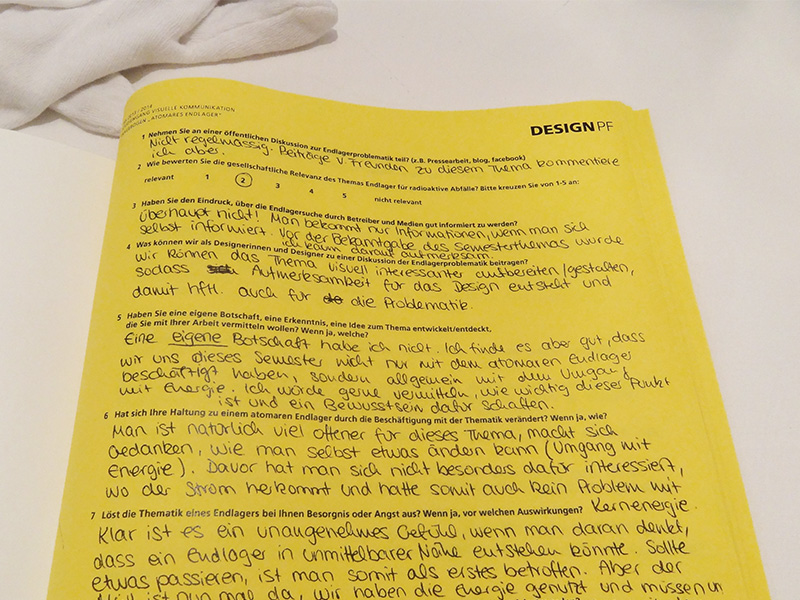 2013 | 2014
STUDIENGANG VISUELLE KOMMUNIKATION
FRAGEBOGEN „ATOMARES ENDLAGER"
DESIGN PF
1 Nehmen Sie an einer öffentlichen Diskussion zur Endlagerproblematik teil? (z.B. Pressearbeit, blog, facebook)
Nicht regelmässig. Beiträge v. Freunden zu diesem Thema kommentiere
ich aber.
2 Wie bewerten Sie die gesellschaftliche Relevanz des Themas Endlager für radioaktive Abfälle? Bitte kreuzen Sie von 1-5 an:
relevant 1 2 3 4 5 nicht relevant
3 Haben Sie den Eindruck, über die Endlagersuche durch Betreiber und Medien gut informiert zu werden?
Überhaupt nicht! Man bekommt nur Informationen, wenn man sich
selbst informiert. Vor der Bekanntgabe des Semesterthemas wurde
ich kaum darauf aufmerksam.
4 Was können wir als Designerinnen und Designer zu einer Diskussion der Endlagerproblematik beitragen?
Wir können das Thema visuell interessanter aufbereiten/gestalten,
sodass Aufmerksamkeit für das Design entsteht und
damit hftl. auch für die Problematik.
5 Haben Sie eine eigene Botschaft, eine Erkenntnis, eine Idee zum Thema entwickelt/entdeckt,
die Sie mit Ihrer Arbeit vermitteln wollen? Wenn ja, welche?
Eine eigene Botschaft habe ich nicht. Ich finde es aber gut, dass
wir uns dieses Semester nicht nur mit dem atomaren Endlager
beschäftigt haben, sondern allgemein mit dem Umgang
mit Energie. Ich würde gerne vermitteln, wie wichtig dieser Punkt
ist und ein Bewusstsein dafür schaffen.
6 Hat sich Ihre Haltung zu einem atomaren Endlager durch die Beschäftigung mit der Thematik verändert? Wenn ja, wie?
Man ist natürlich viel offener für dieses Thema, macht sich
Gedanken, wie man selbst etwas ändern kann (Umgang mit
Energie). Davor hat man sich nicht besonders dafür interessiert,
wo der Strom herkommt und hatte somit auch kein Problem mit
Kernenergie.
7 Löst die Thematik eines Endlagers bei Ihnen Besorgnis oder Angst aus? Wenn ja, vor welchen Auswirkungen?
Klar ist es ein unangenehmes Gefühl, wenn man daran denkt,
dass ein Endlager in unmittelbarer Nähe entstehen könnte. Sollte
etwas passieren, ist man somit als erstes betroffen. Aber der
Müll ist nun mal da, wir haben die Energie genutzt und müssen